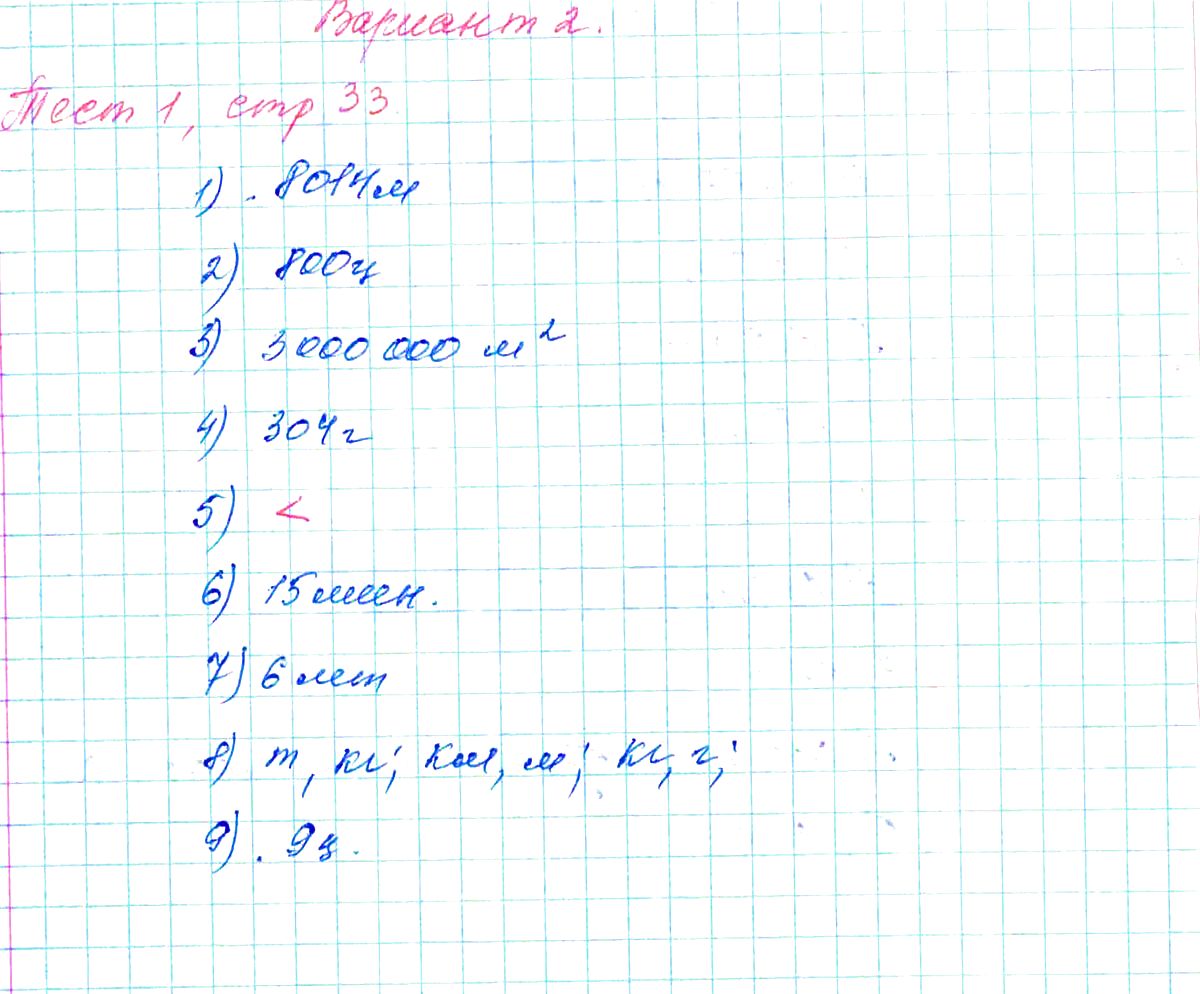 Вариант 2.
Тест 1, стр 33
1) . 8014м
2) 800ц
3) 3000 000 м²
4) 304г
5) <
6) 15 мин.
7) 6 лет
8) т, кг; км, м; кг, г;
9) . 9ц.